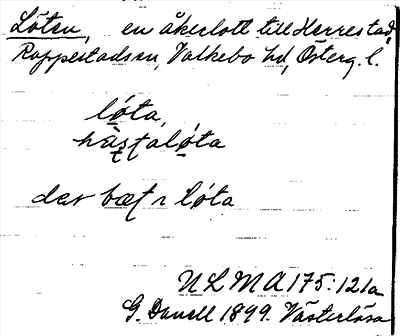 Löten, en åkerlott till Herrestad,
Rappestads sn, Valkebo hd, Österg. l.
lóta,
hästalóta
der bæt r lóta
ULMA 175:121a
G. Danell 1899. Västerlösa